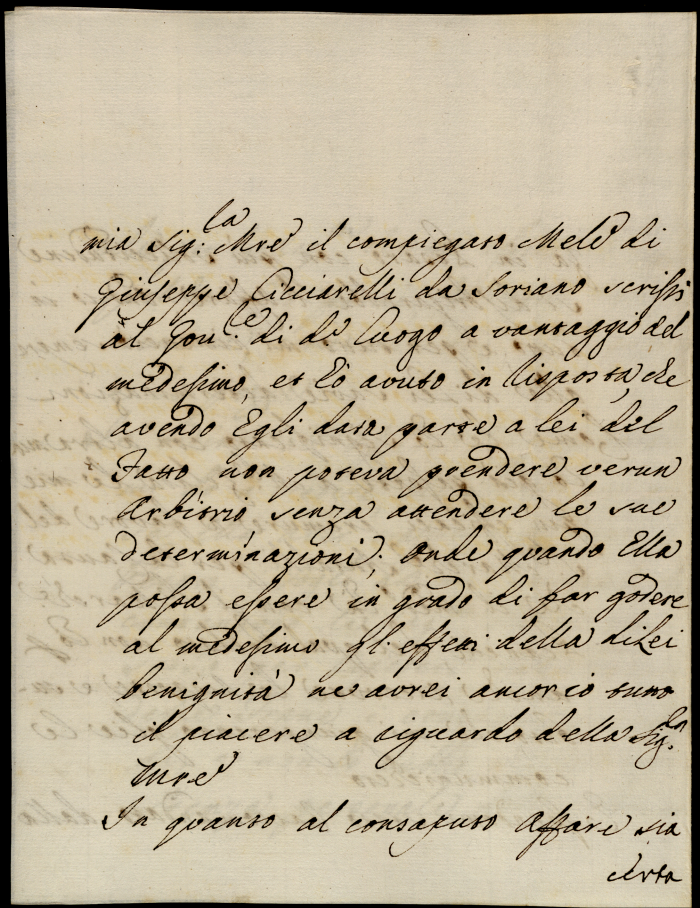 mia Sig:ra Mre il compiegato Mele di
Giuseppe Cicciarelli da Soriano scrissi
al Gov.e di do Luogo a vantaggio del
medesimo, et ò avuto in risposta, che
avendo Egli data parte a lei del
Fatto non poteva prendere verun
Arbitrio senza attendere le sue
determinazioni; onde quando Ella
possa essere in grado di far godere
al medesimo gl'effetti della di Lei
benignità ne avrei ancor io tutto
il piacere a riguardo della Sig.ra
Mre
In quanto al consaputo Affare sia
certa